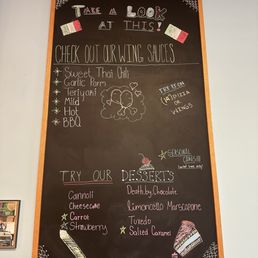 TAKE A LOOK
AT THIS!
CHECK OUT OUR WING SAUCES
Sweet Thai Chili
Garlic Parm
Teriyaki
Mild
Hot
BBQ
PIZZA OR
WINGS
SEASONAL
TRY OUR DESSERTS
Cannoli
Cheesecake
Carrot
Strawberry
Death by Chocolate
Limoncello Marscapone
Tuxedo
Salted Caramel